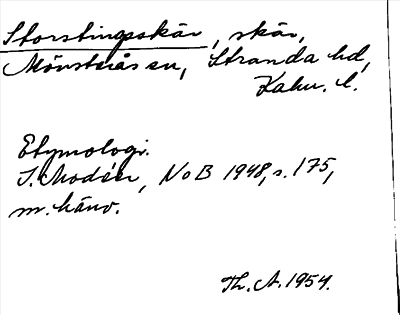 Storstingsskär, skär,
Mönsterås sn, Stranda hd,
Kalm. l.
Etymologi.
I. Modéer, NoB 1948, s. 175,
m. hänv.
Th. A. 1954.